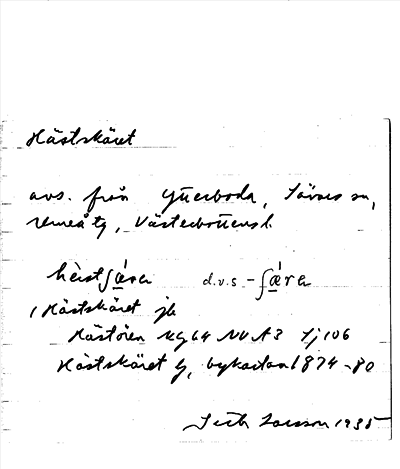 Hästskäret
avs. från Ytterboda, Sävars sn,
Umeå tg, Västerbottens l.
hèstʃǽra d.v.s. -ʃǽra
Hästskäret jb
Hästören KG64 NV A3 Sj 106
Hästskäret tg, bykartan 1874-80
Seth Larsson 1935